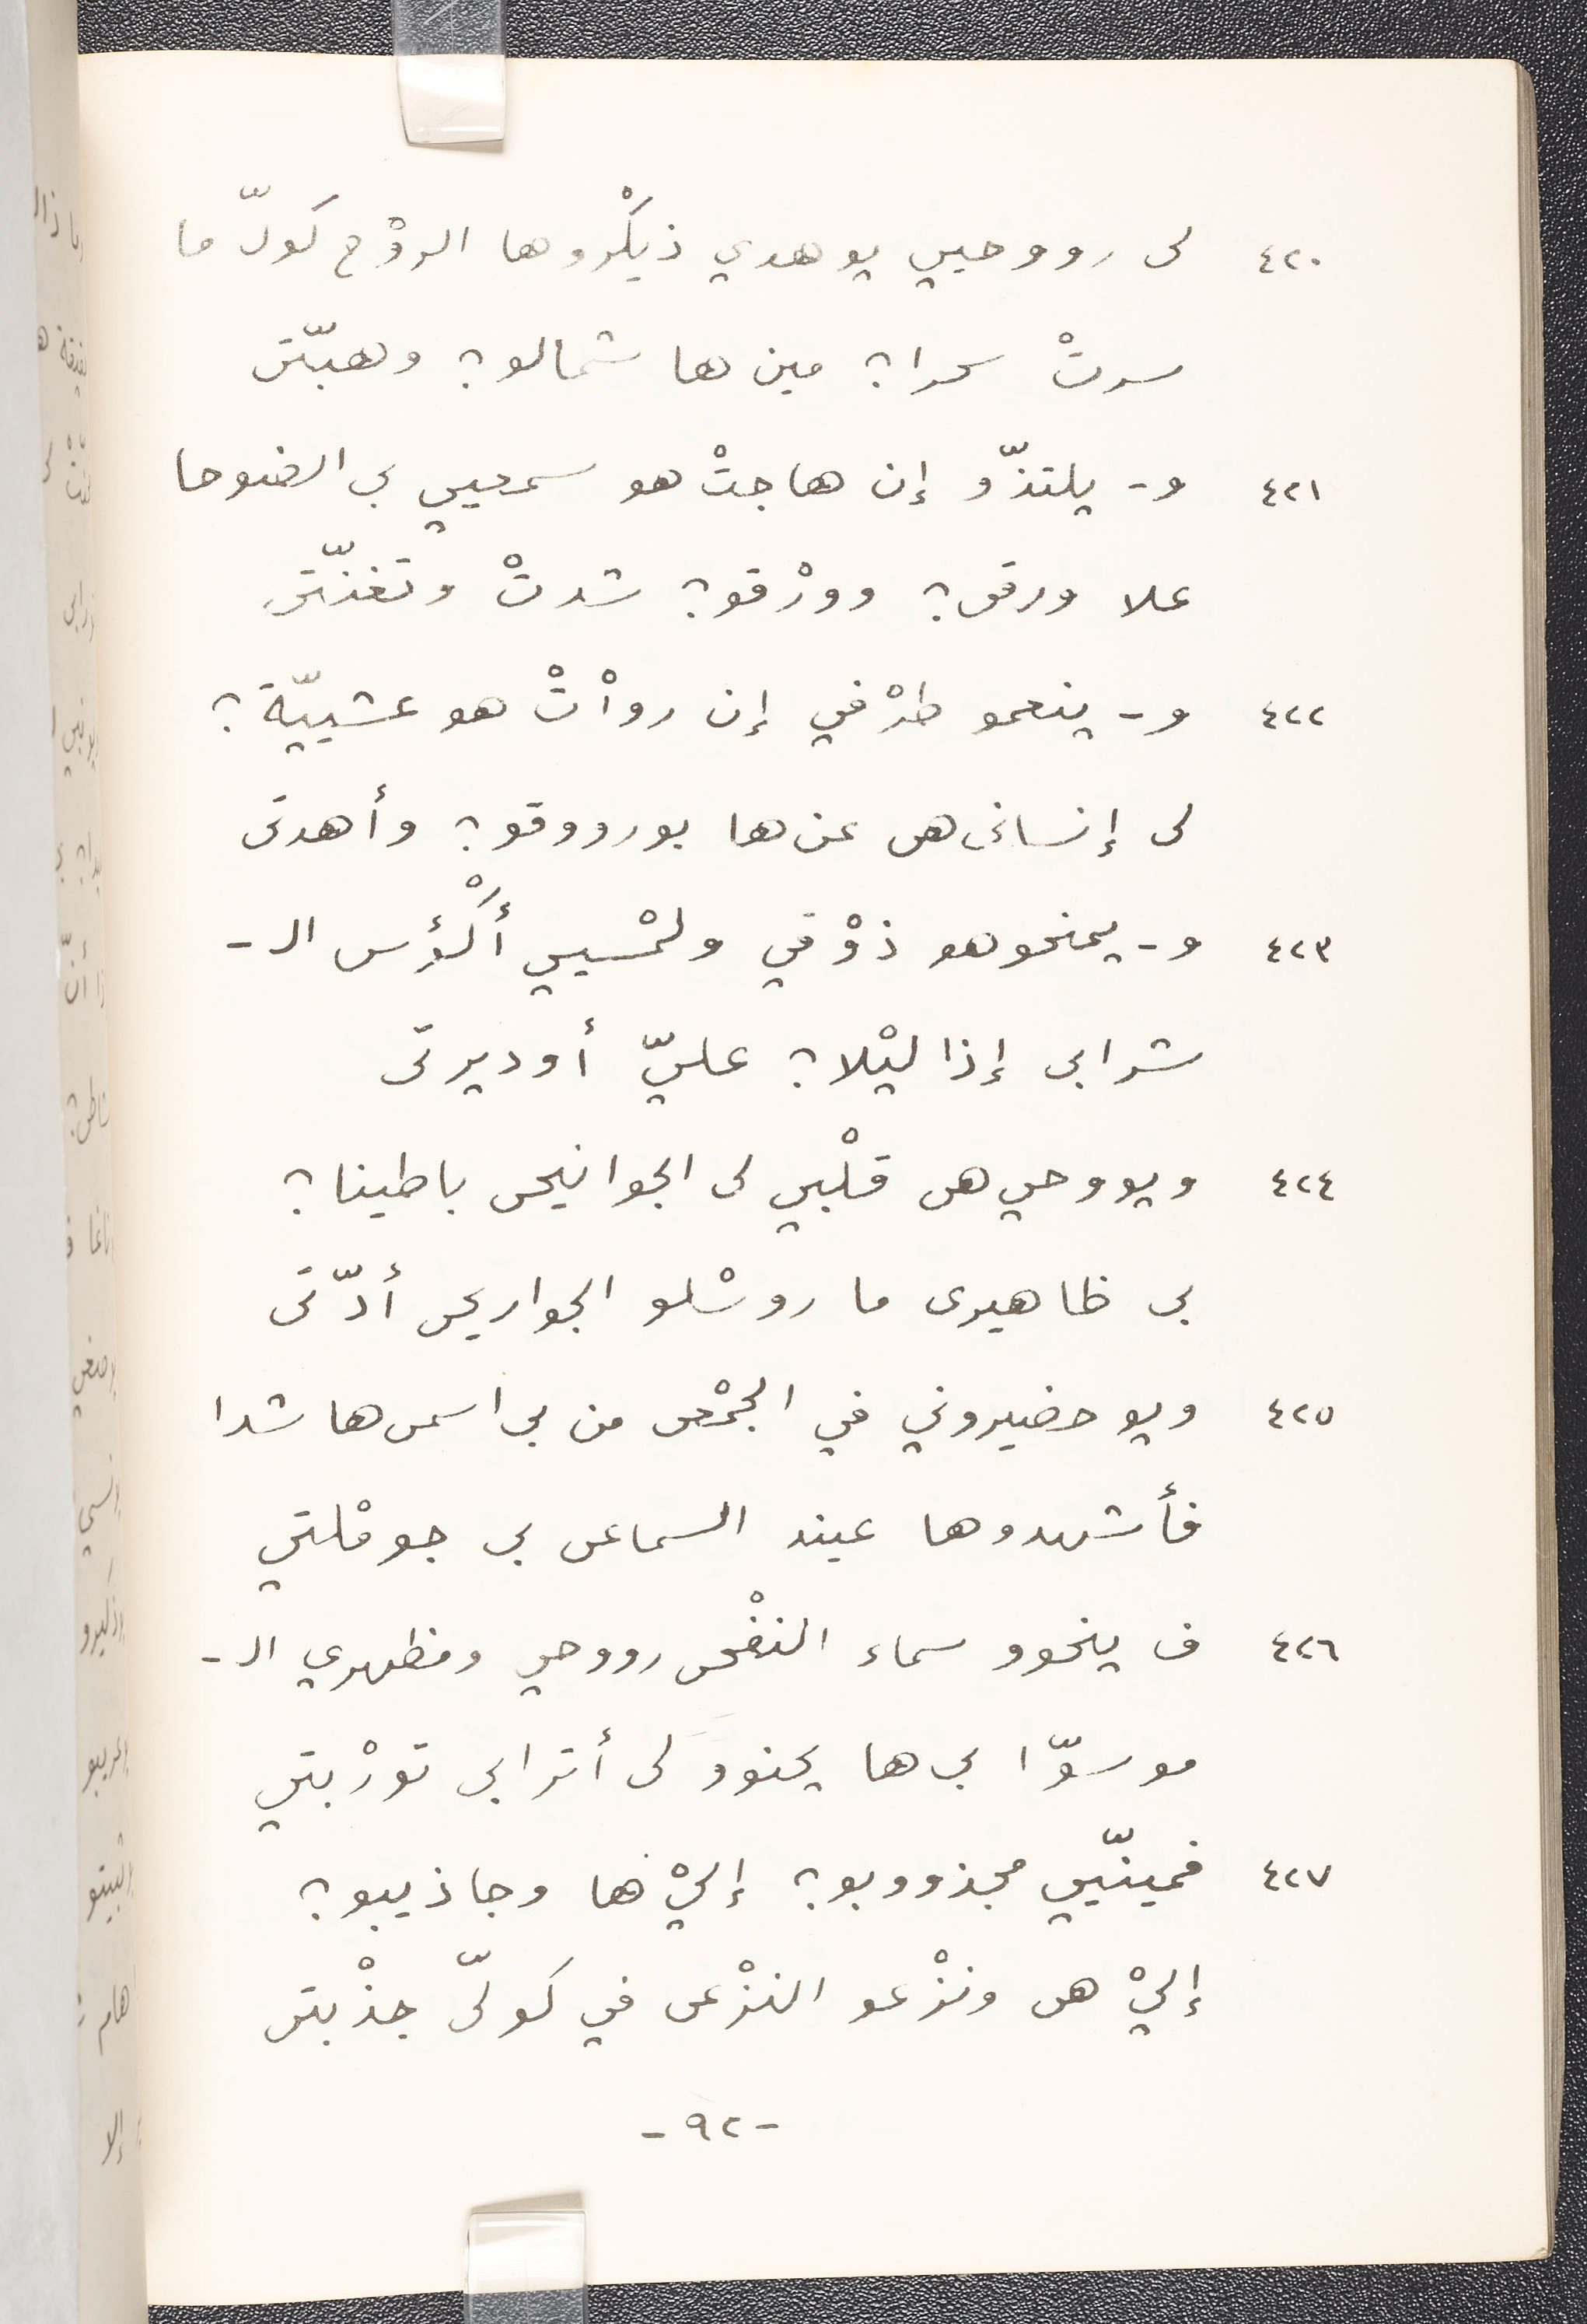 ٤٢٠ لى رووحيي يوهدي ذيكْروها الروْح كولّ ما
سرتْ سحرا؟ مين ها شمالو؟ وهبّتى
٤٢١ و- يلتذّو إن هاجتْ هو سمعيي بى الضوحا
علا ورقى؟ وورْقو؟ شدتْ وتغنّتى
٤٢٢ و- ينعمو طرْفي إن رواْتْ هو عشييّة؟
لى إنسانى هى عن ها بورووقو؟ وأهدتى
٤٢٣ و- يمنحوهو ذوْقي ولمْسيي أكْؤس الـ -
شرابى إذا ليْلا؟ عليّ أوديرتى
٤٢٤ ويووحي هى قلْبي لى الجوانيحى باطينا؟
بى ظاهيرى ما روسْلو الجواريحى أدّتى
٤٢٥ ويوحضيروني في الجمْعى من بى اسمى ها شدا
فأشهدوها عيند السماعى بى جومْلتي
٤٢٦ ف ينحوو سماء النفْحى رووحي ومظهري الـ -
موسوّا بى ها يحنوو لى أترابى تورْبتي
٤٢٧ فمينّيي مجذووبو؟ إليْ ها وجاذيبو؟
إليْ هى ونزْعو النزْعى في كولّى جذْبتى
-٩٢-